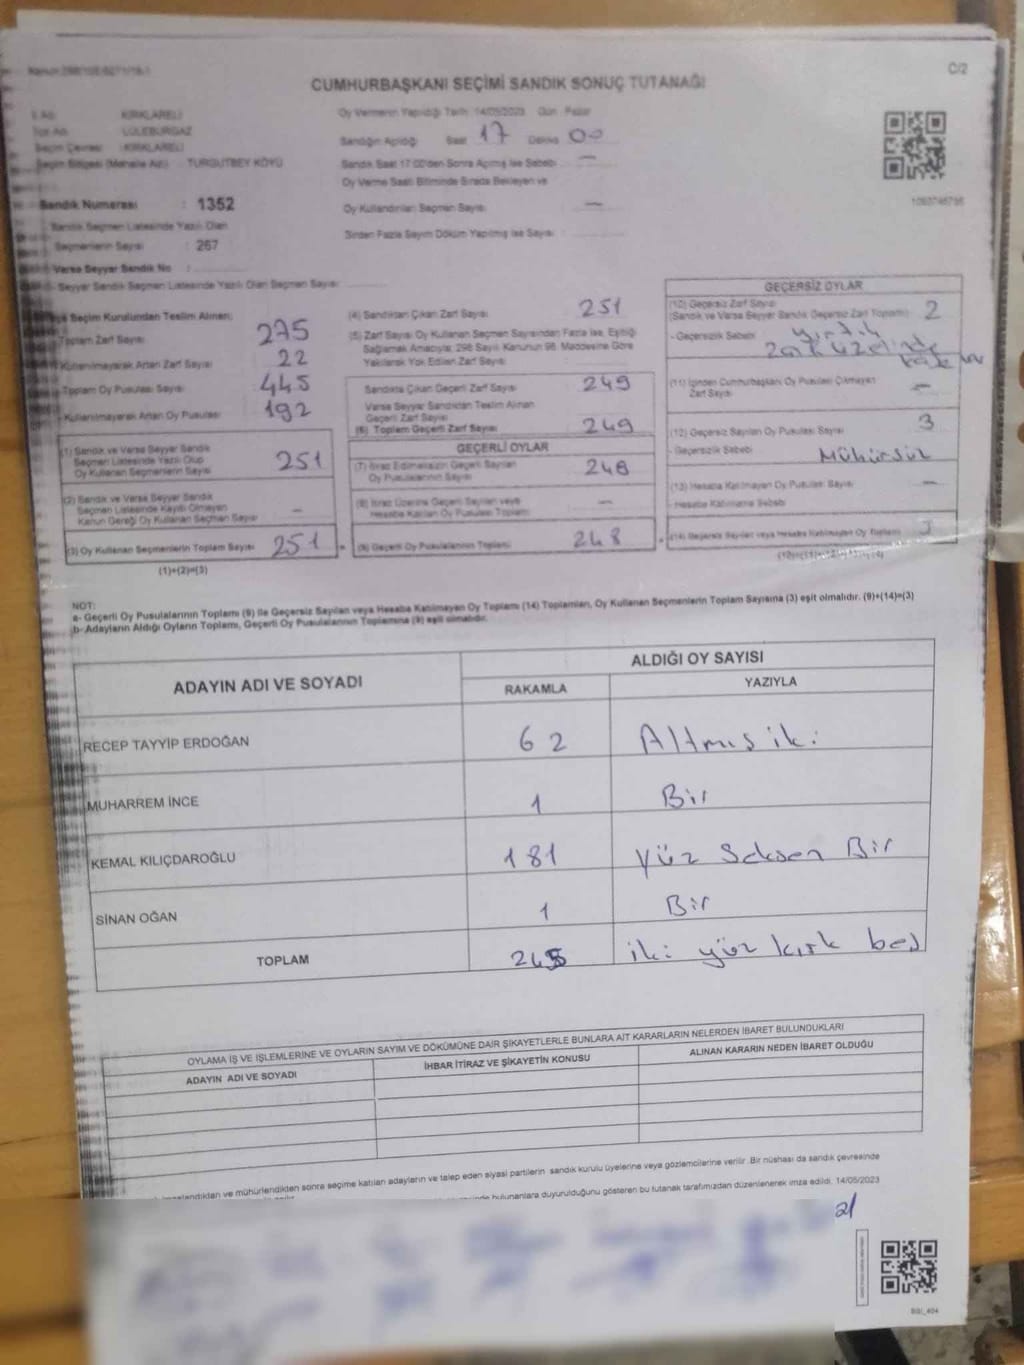 Kanun:298/105;6271/19-1
C/2
CUMHURBAŞKANI SEÇİMİ SANDIK SONUÇ TUTANAĞI
İl Adı : KIRKLARELİ
İlçe Adı : LÜLEBURGAZ
Seçim Çevresi : KIRKLARELİ
Seçim Bölgesi (Mahalle Adı) : TURGUTBEY KÖYÜ
Sandık Numarası : 1352
Sandık Seçmen Listesinde Yazılı Olan
Seçmenlerin Sayısı : 267
Varsa Seyyar Sandık No :
Seyyar Sandık Seçmen Listesinde Yazılı Olan Seçmen Sayısı:
Oy Vermenin Yapıldığı Tarih: 14/05/2023 Gün : Pazar
Sandığın Açıldığı Saat 17 Dakika 00
Sandık Saat 17:00'den Sonra Açılmış İse Sebebi —
Oy Verme Saati Bitiminde Sırada Bekleyen ve
Oy Kullandırılan Seçmen Sayısı —
Birden Fazla Sayım Döküm Yapılmış İse Sayısı
İlçe Seçim Kurulundan Teslim Alınan;
Toplam Zarf Sayısı 275
Kullanılmayarak Artan Zarf Sayısı 22
Toplam Oy Pusulası Sayısı 445
Kullanılmayarak Artan Oy Pusulası 192
(1) Sandık ve Varsa Seyyar Sandık
Seçmen Listesinde Yazılı Olup
Oy Kullanan Seçmenlerin Sayısı 251
(2) Sandık ve Varsa Seyyar Sandık
Seçmen Listesinde Kaydı Olmayan
Kanun Gereği Oy Kullanan Seçmen Sayısı —
(3) Oy Kullanan Seçmenlerin Toplam Sayısı 251
(1)+(2)=(3)
(4) Sandıktan Çıkan Zarf Sayısı 251
(5) Zarf Sayısı Oy Kullanan Seçmen Sayısından Fazla İse, Eşitliği
Sağlamak Amacıyla; 298 Sayılı Kanunun 98. Maddesine Göre
Yakılarak Yok Edilen Zarf Sayısı
Sandıkta Çıkan Geçerli Zarf Sayısı 249
Varsa Seyyar Sandıktan Teslim Alınan
Geçerli Zarf Sayısı
(6) Toplam Geçerli Zarf Sayısı 249
GEÇERLİ OYLAR
(7) İtiraz Edilmeksizin Geçerli Sayılan
Oy Pusulalarının Sayısı 248
(8) İtiraz Üzerine Geçerli Sayılan veya
Hesaba Katılan Oy Pusulası Toplamı —
(9) Geçerli Oy Pusulalarının Toplamı 248
GEÇERSİZ OYLAR
(10) Geçersiz Zarf Sayısı
(Sandık ve Varsa Seyyar Sandık Geçersiz Zarf Toplamı) 2
- Geçersizlik Sebebi yırtık
Zarf üzerinde
(11) İçinden Cumhurbaşkanı Oy Pusulası Çıkmayan
Zarf Sayısı —
(12) Geçersiz Sayılan Oy Pusulası Sayısı 3
- Geçersizlik Sebebi Mühürsüz
(13) Hesaba Katılmayan Oy Pusulası Sayısı —
- Hesaba Katılmama Sebebi
(14) Geçersiz Sayılan veya Hesaba Katılmayan Oy Toplamı 3
NOT:
a- Geçerli Oy Pusulalarının Toplamı (9) ile Geçersiz Sayılan veya Hesaba Katılmayan Oy Toplamı (14) Toplamları, Oy Kullanan Seçmenlerin Toplam Sayısına (3) eşit olmalıdır. (9)+(14)=(3)
b- Adayların Aldığı Oyların Toplamı, Geçerli Oy Pusulalarının Toplamına (9) eşit olmalıdır.
ADAYIN ADI VE SOYADI
ALDIĞI OY SAYISI
RAKAMLA YAZIYLA
RECEP TAYYİP ERDOĞAN 62 Altmış iki
MUHARREM İNCE 1 Bir
KEMAL KILIÇDAROĞLU 181 yüz Seksen Bir
SİNAN OĞAN 1 Bir
TOPLAM 245 iki yüz kırk beş
OYLAMA İŞ VE İŞLEMLERİNE VE OYLARIN SAYIM VE DÖKÜMÜNE DAİR ŞİKAYETLERLE BUNLARA AİT KARARLARIN NELERDEN İBARET BULUNDUKLARI
ADAYIN ADI VE SOYADI İHBAR İTİRAZ VE ŞİKAYETİN KONUSU ALINAN KARARIN NEDEN İBARET OLDUĞU
imzalandıktan ve mühürlendikten sonra seçime katılan adayların ve talep eden siyasi partilerin sandık kurulu üyelerine veya gözlemcilerine verilir. Bir nüshası da sandık çevresinde
bulunanlara duyurulduğunu gösteren bu tutanak tarafımızdan düzenlenerek imza edildi. 14/05/2023